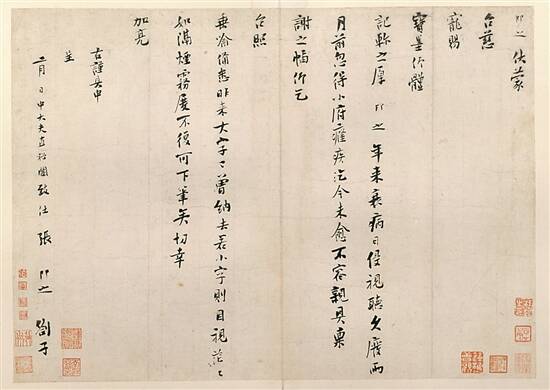 即之 伏蒙
台慈
寵賜
寶墨仰體
記軫之厚 即之 年來衰病日侵視聽久廢兩
月前忽得小府癃疾迄今未愈不容親具稟
謝之幅仰乞
台照
垂喻備悉昨來大字已曾納去若小字則目視茫〻
如滿煙霧 不復可下筆矣切幸
加亮
右謹具申
呈
二月 日中大夫直祕閣致仕 張 即之 劄子